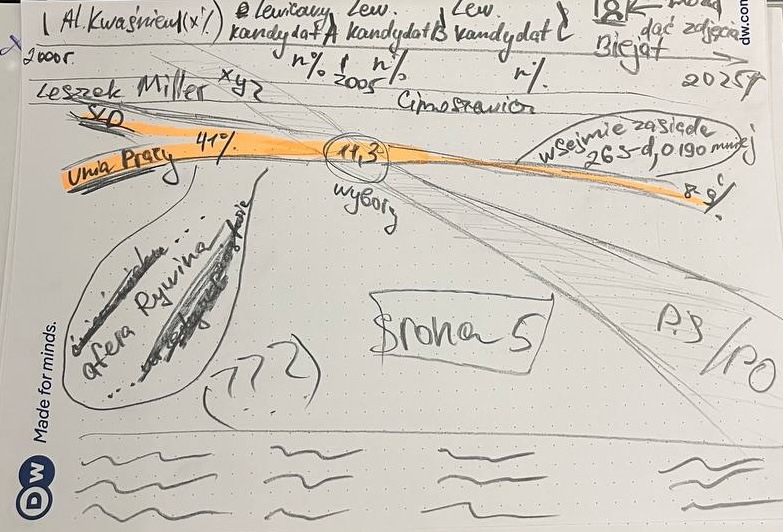 Al. Kwaśniew(x%)
Lewicowy
kandydat A
n%
Lew.
kandydat B
n%
Lew.
kandydat C
n%
dać zdjęcia
Biejat
dw.com
2000r.
2005
2025r
Leszek Miller xyz
Cimoszewicz
SLD
Unia Pracy
41%
11,3
wybory
w Sejmie zasiada
26 s-d, o 190 mniej
8-9%
afera Rywina
...
...
(???)
Strona 5
PiS/PO
Made for minds.
DW